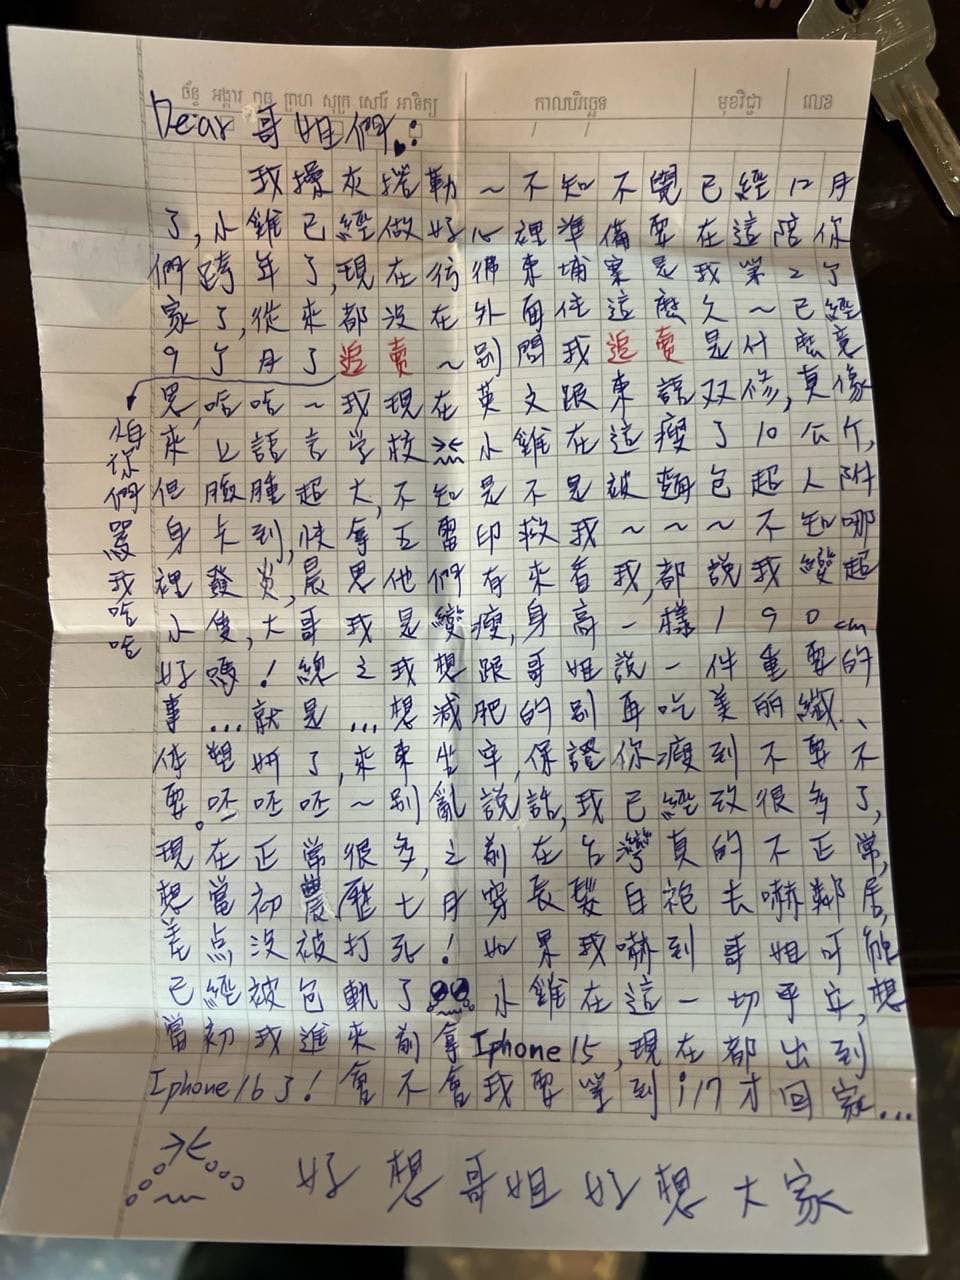 ច័ន្ទ អង្គារ ពុធ ព្រហ សុក្រ សៅរ៍ អាទិត្យ កាលបរិច្ឆេទ មុខវិជ្ជា លេខ
Dear 哥姐們
我操灰捲勒～不知不覺已經12月
了,小雞已經做好心裡準備要在這陪你
們跨年了,現在彷彿柬埔寨是我第2个
家了,從來都沒在外面住這麼久～已經
9个月了追賣～別問我追賣是什麼意
思,哈哈～我現在英文跟柬語双修,真像
來上語言学校 小雞在這瘦了10公斤,
但臉腫超大,不知是不是被麵包超人附
身卡到,快拿五雷印救我～～～不知哪
裡發炎,晨思他們有來看我,都說我變超
小隻,大哥我是變瘦,身高一樣190cm
好嗎!總之我想跟哥姐說一件重要的
事...就是...想減肥的別再吃美的纖、
倖塑妍了,來柬坐牢,保證你瘦到不要不
要。呸呸呸～別亂說話,我已經改很多了,
現在正常很多,之前在台灣真的不正常,
想當初農歷七月穿長髮白袍去嚇鄰居,
差点沒被打死!如果我嚇到哥姐可能
已經被包軌了 小雞在這一切平安,想
當初我進來前拿Iphone15,現在都出到
Iphone16了!會不會我要等到i17才回家...
好想哥姐好想大家
怕你們罵我哈哈